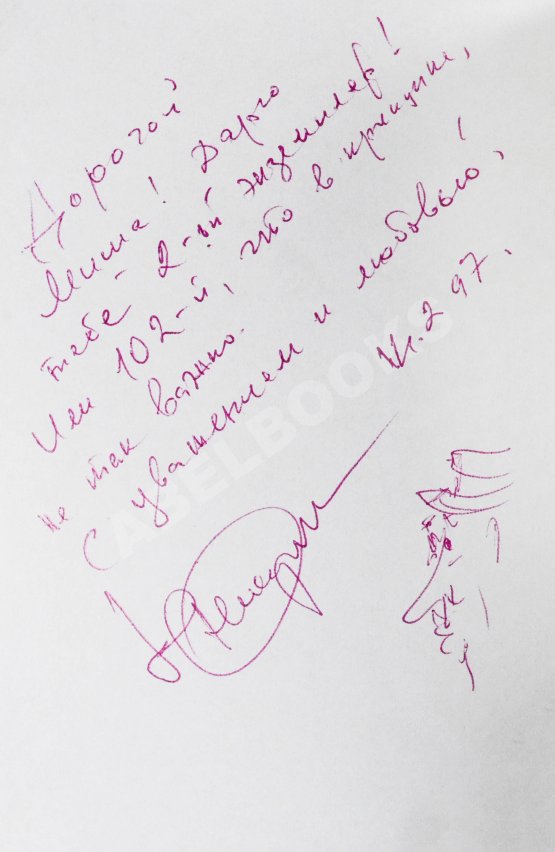 Дорогой
Миша! Дарю
тебе 2-ой экземпляр!
Или 102-й, что в принципе,
не так важно.
С уважением и любовью,
2 97.
ABELBOOKS